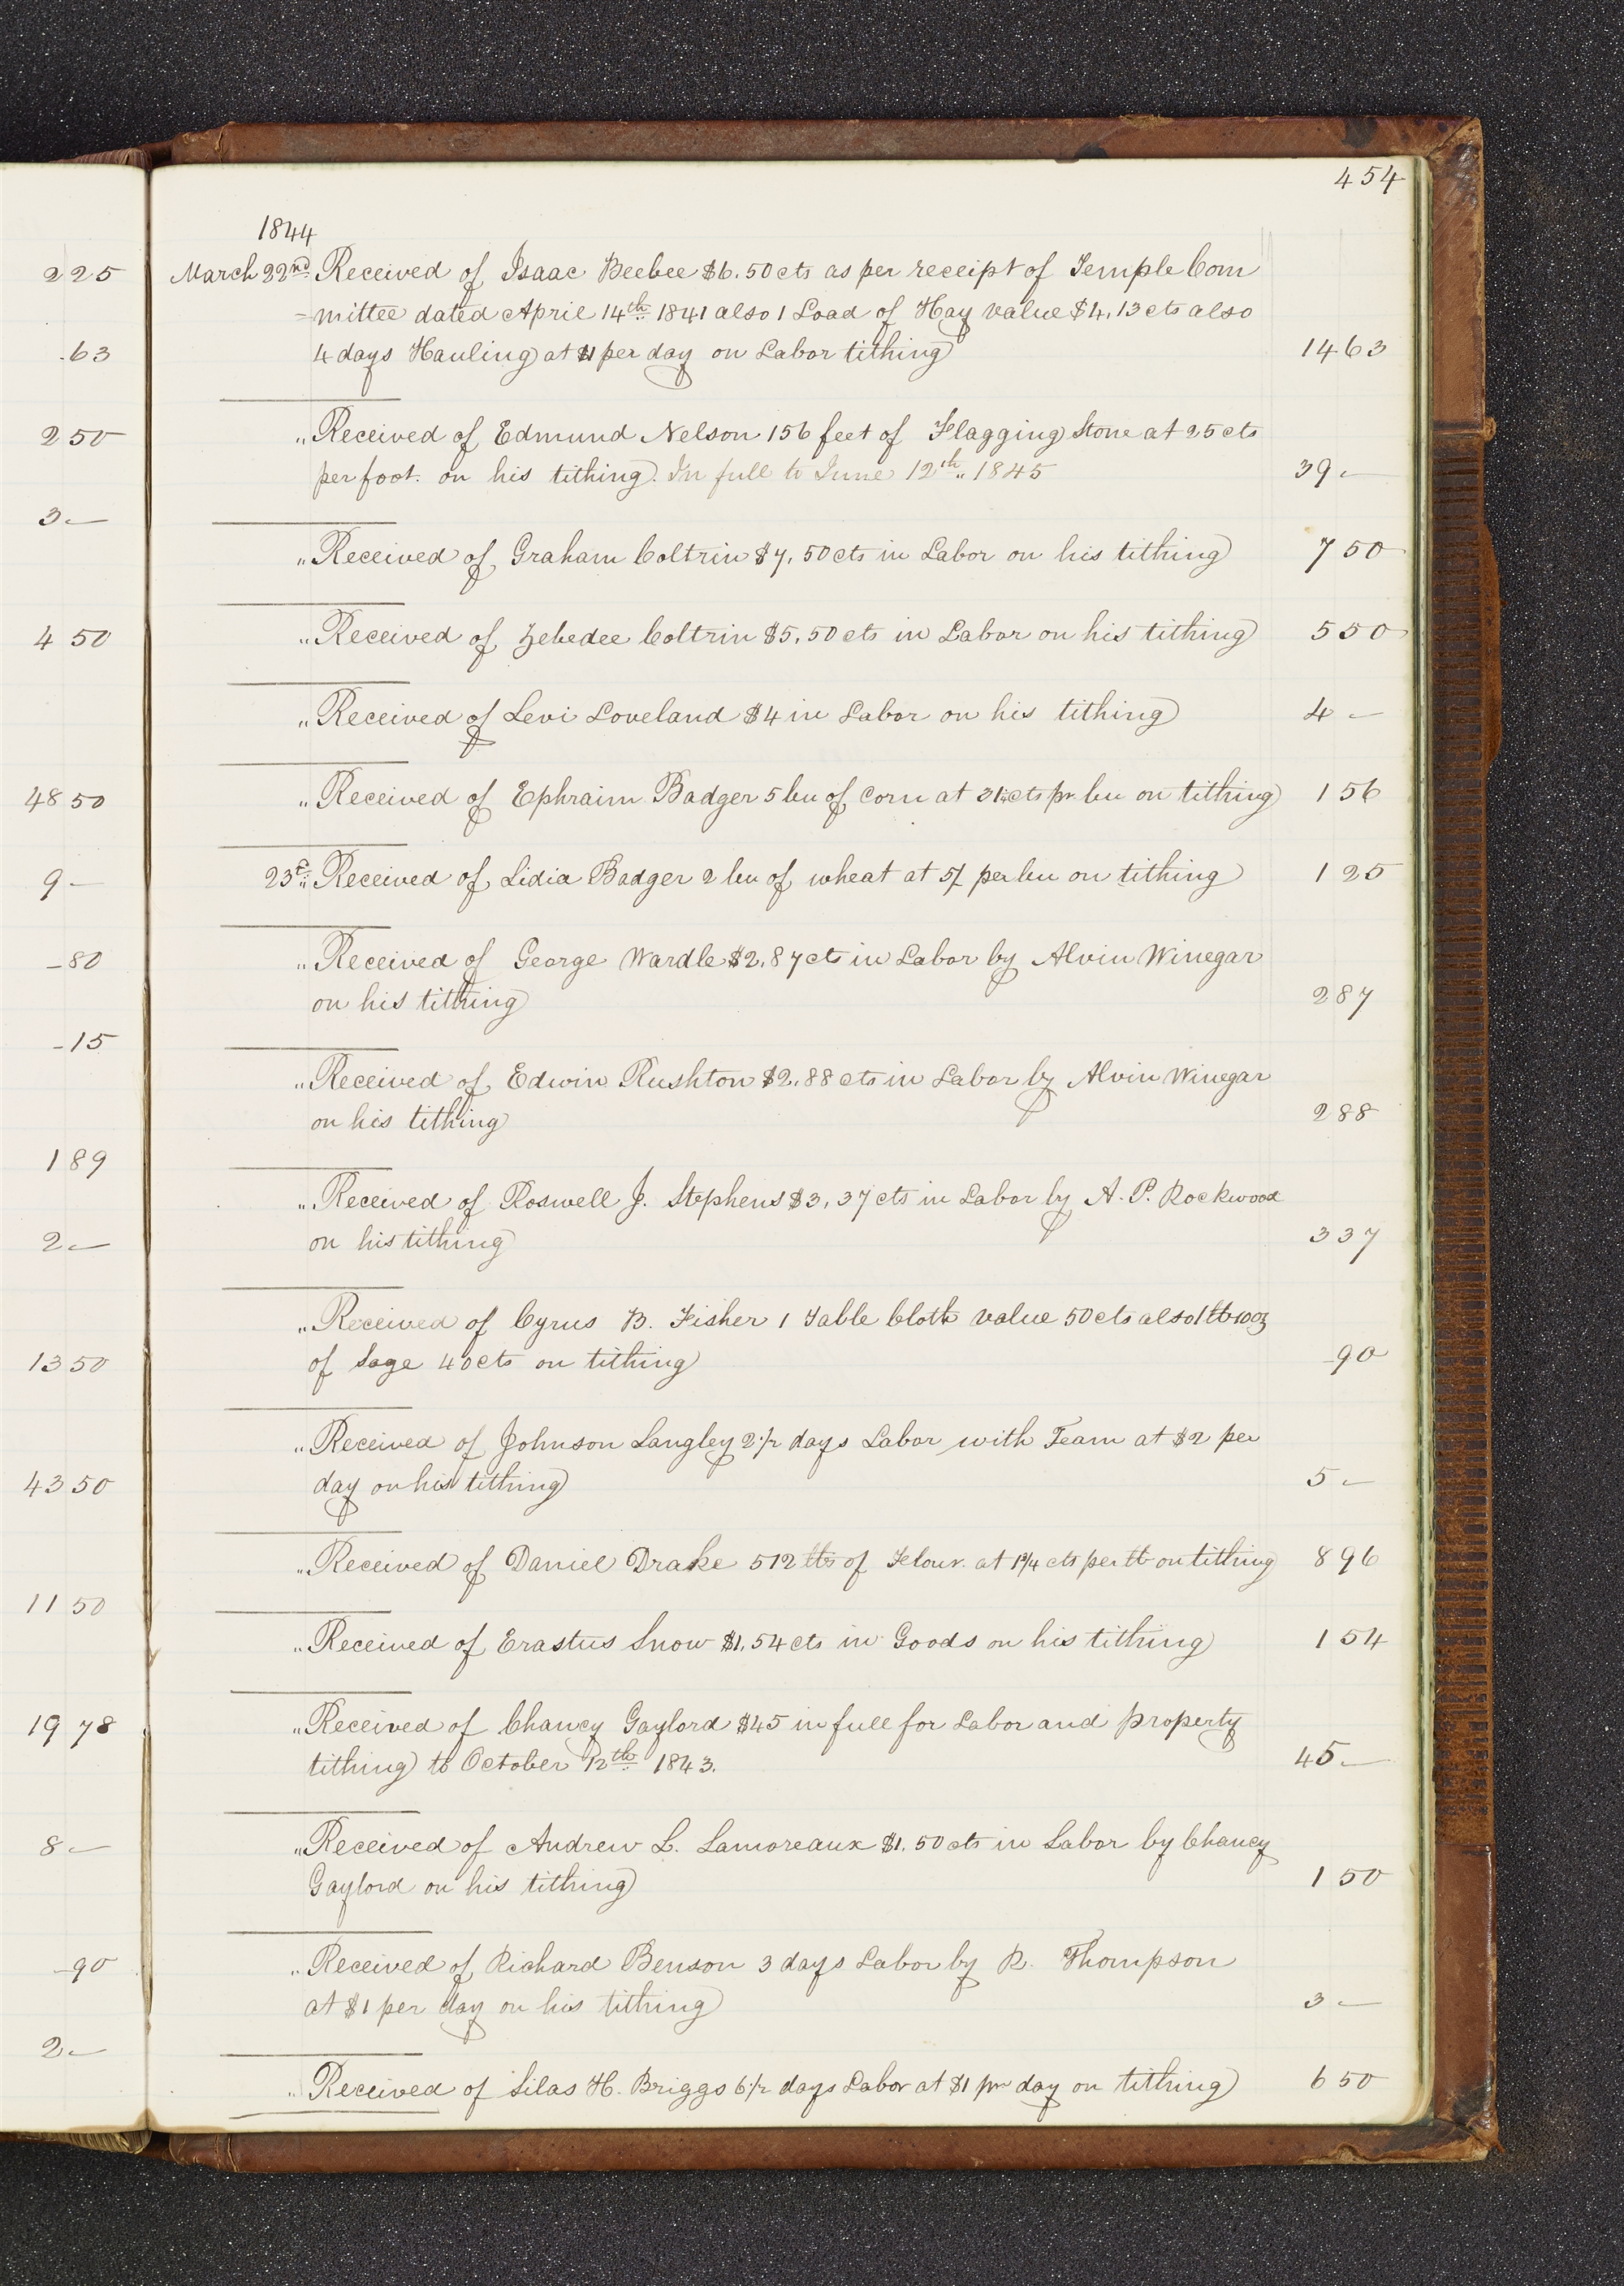 454
1844
225
March 22nd. Received of Isaac Beebee $6.50 cts as per receipt of Temple Com
=mittee dated April 14th. 1841 also 1 Load of Hay value $4.13 cts also
.63
4 days Hauling at $1 per day on Labor tithing 14 63
2 50
" Received of Edmund Nelson 156 feet of Flagging Stone at 25 cts
per foot. on his tithing. In full to June 12th " 1845 39 -
3 -
" Received of Graham Coltrin $7.50 cts in Labor on his tithing 7 50
4 50
" Received of Zebedee Coltrin $5.50 cts in Labor on his tithing 5 50
" Received of Levi Loveland $4 in Labor on his tithing 4 -
48 50
" Received of Ephraim Badger 5 bu of Corn at 31¼ cts pr bu on tithing 1 56
9 -
23d. " Received of Lidia Badger 2 bu of wheat at 5/ per bu on tithing 1 25
-80
" Received of George Wardle $2.87 ct in Labor by Alvin Winegar
on his tithing 2 87
-15
" Received of Edwin Rushton $2.88 cts in Labor by Alvin Winegar
on his tithing 2 88
1 89
" Received of Roswell J. Stephens $3.37 cts in Labor by A. P. Rockwood
2 -
on his tithing 3 37
" Received of Cyrus B. Fisher 1 Table Cloth value 50 cts also 1 lb 10 oz
13 50
of Sage 40 cts on tithing -90
" Received of Johnson Langley 2 1/2 days Labor with Team at $2 per
43 50
day on his tithing 5 -
" Received of Daniel Drake 512 lbs of Flour. at 1 3/4 cts per lb on tithing 8 96
11 50
" Received of Erastus Snow $1.54 cts in Goods on his tithing 1 54
19 78
" Received of Chancy Gaylord $45 in full for Labor and property
tithing to October 12th. 1843. 45 -
8 -
" Received of Andrew L. Lamoreaux $1.50 cts in Labor by Chancy
Gaylord on his tithing 1 50
-90
" Received of Richard Benson 3 days Labor by R. Thompson
at $1 per day on his tithing 3 -
2 -
" Received of Silas H. Briggs 6 1/2 days Labor at $1 pr day on tithing 6 50